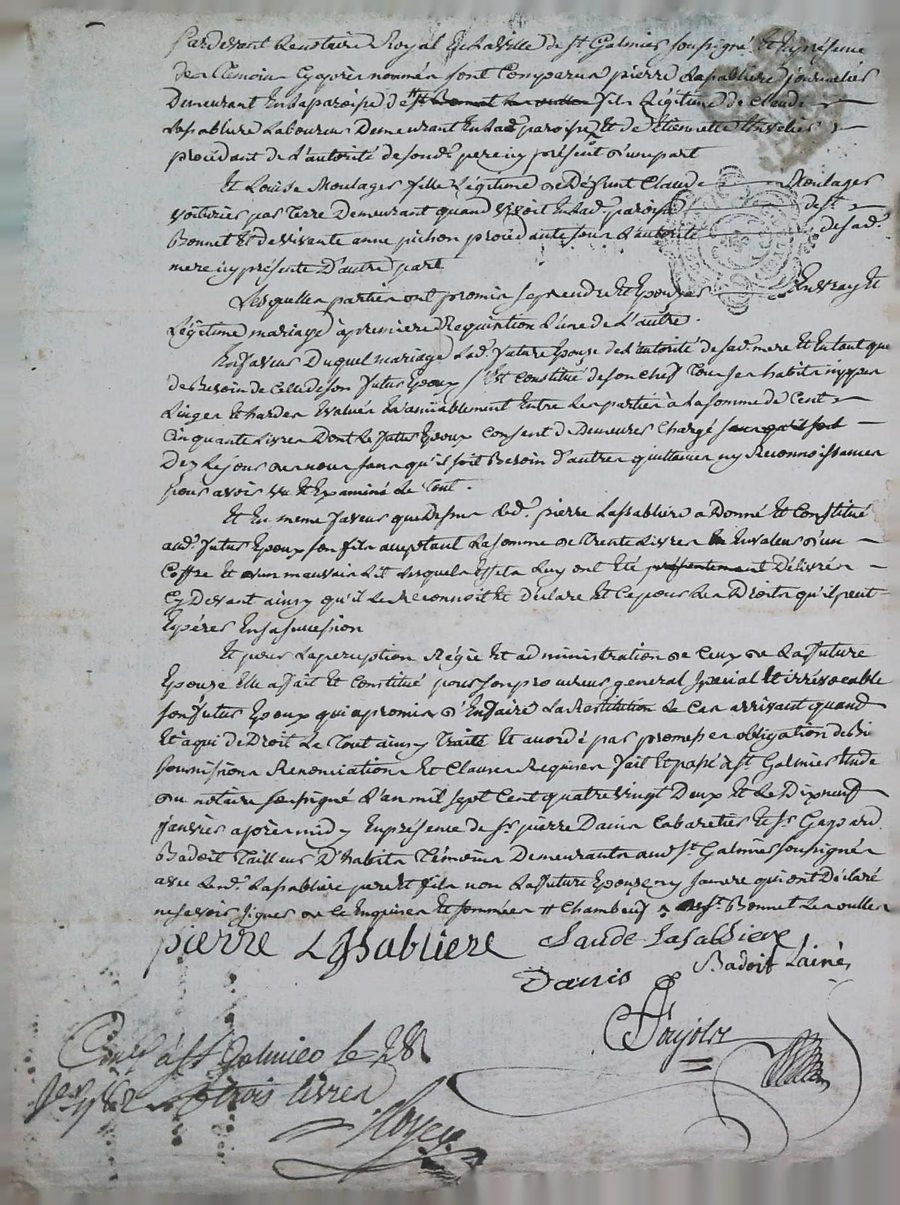 Pardevant Le notaire Royal En La Ville de St Galmier soussigné Et En présence
des temoins Cy après nommés sont Comparus pierre Lassabliere journalier
Demeurant En La paroisse de # St Bonnet Les oulles fils Légitime de Claude
Lassabliere Laboureur Demeurant En Lad. paroisse, Et de Etiennette
procédant de L'autorité de sond. pere icy présent d'une part
Et Louise Moulager fille Légitime de Défunt Claude Moulager
voiturier par Terre Demeurant quand vivoit En Lad. paroisse de St
Bonnet Et de vivante anne pichon procédante sous L'autorité de sad.
mere icy présente D'autre part
Lesquelles parties ont promis se prendre Et Epouser En vray Et
Légitime mariage à premiere Requisition L'une de L'autre.
En faveur Duquel mariage Lad. future Epouse de L'autorité de sad. mere Et En tant que
de Besoin de Celle de son futur Epoux s'Est Constitué de son Chef Tous ses habits nippes
Linges Et hardes Evalués Entre Les parties à La somme de Cent
Cinquante Livres Dont Le futur Epoux Consent de Demeurer Chargé sans qu'il soit
Dez Le jour de noces sans qu'il soit Besoin d'autres quittances ny Reconnoissances
pour avoir vu Et Examiné Le Tout.
Et En meme faveur que Dessus Led. pierre Lassabliere a Donné Et Constitué
aud. futur Epoux son fils acceptant La somme de Trente Livres En valeur d'un
Coffre Et d'un mauvais Lit Lesquels Effets Luy ont Eté présentement Délivrés
Cy Devant ainsy qu'il Le Reconnoit Et Déclare Et Ce pour Les Droits qu'il peut
Espérer En sa succession
Et pour La perception Régie Et administration de Ceux de La future
Epouse Elle a fait Et Constitué pour son procureur general special Et irrévocable
son futur Epoux qui a promis d'En faire La Restitution Le Cas arrivant quand
Et à qui de Droit Le Tout ainsy Traité Et accordé par promesses obligation de
soumissions Renonciations Et Clauses Requises fait Et passé à St Galmier Etude
du notaire soussigné L'an mil sept Cent quatre vingt Deux Et Le Dix neuf
janvier après midy En présence de Sr pierre Davis Cabaretier Et Sr Gaspard
Badoit Tailleur D'habits Témoins Demeurants aud. St Galmier soussignés
avec Lesd. Lassabliere pere Et fils non La future Epouse ny sa mere qui ont Déclaré
ne savoir signer de Ce Enquises Et sommées # Chambeuf de St Bonnet Les oulles
pierre LaSabliere Claude LaSabliere
Davis Badoit Lainé
Pujolz
Conlé à St Galmier le 28
Jer 1782 trois livres